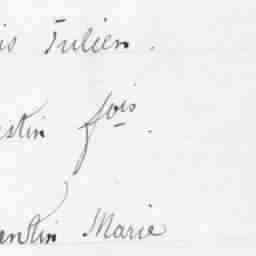 is Julien.
stin fois.
antin Marie